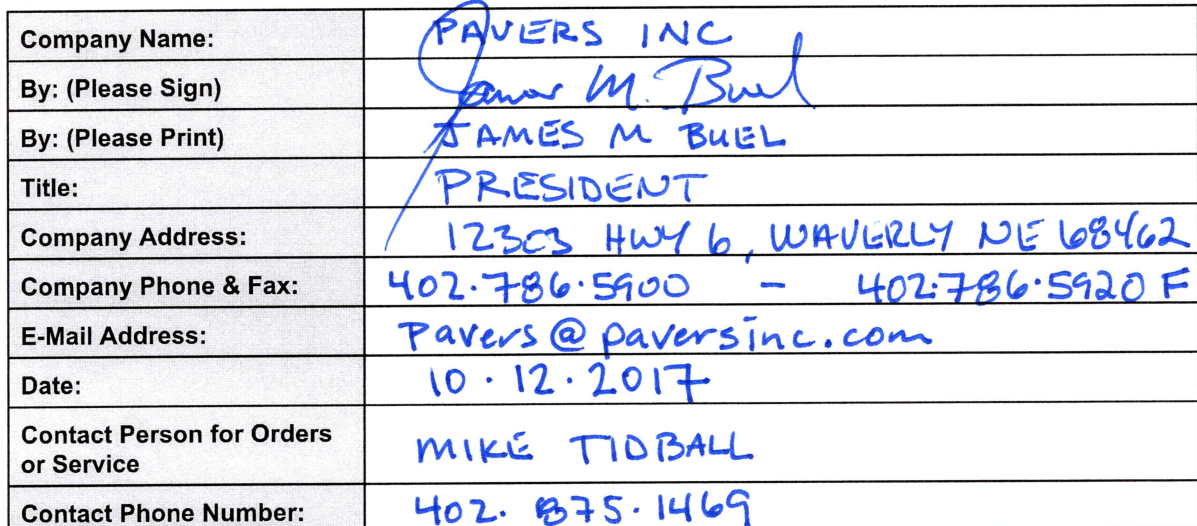 Company Name: PAVERS INC
By: (Please Sign) James M. Buel
By: (Please Print) JAMES M BUEL
Title: PRESIDENT
Company Address: 12303 HWY 6, WAVERLY NE 68462
Company Phone & Fax: 402.786.5900 - 402.786.5920 F
E-Mail Address: Pavers@paversinc.com
Date: 10.12.2017
Contact Person for Orders
or Service MIKE TIDBALL
Contact Phone Number: 402.875.1469